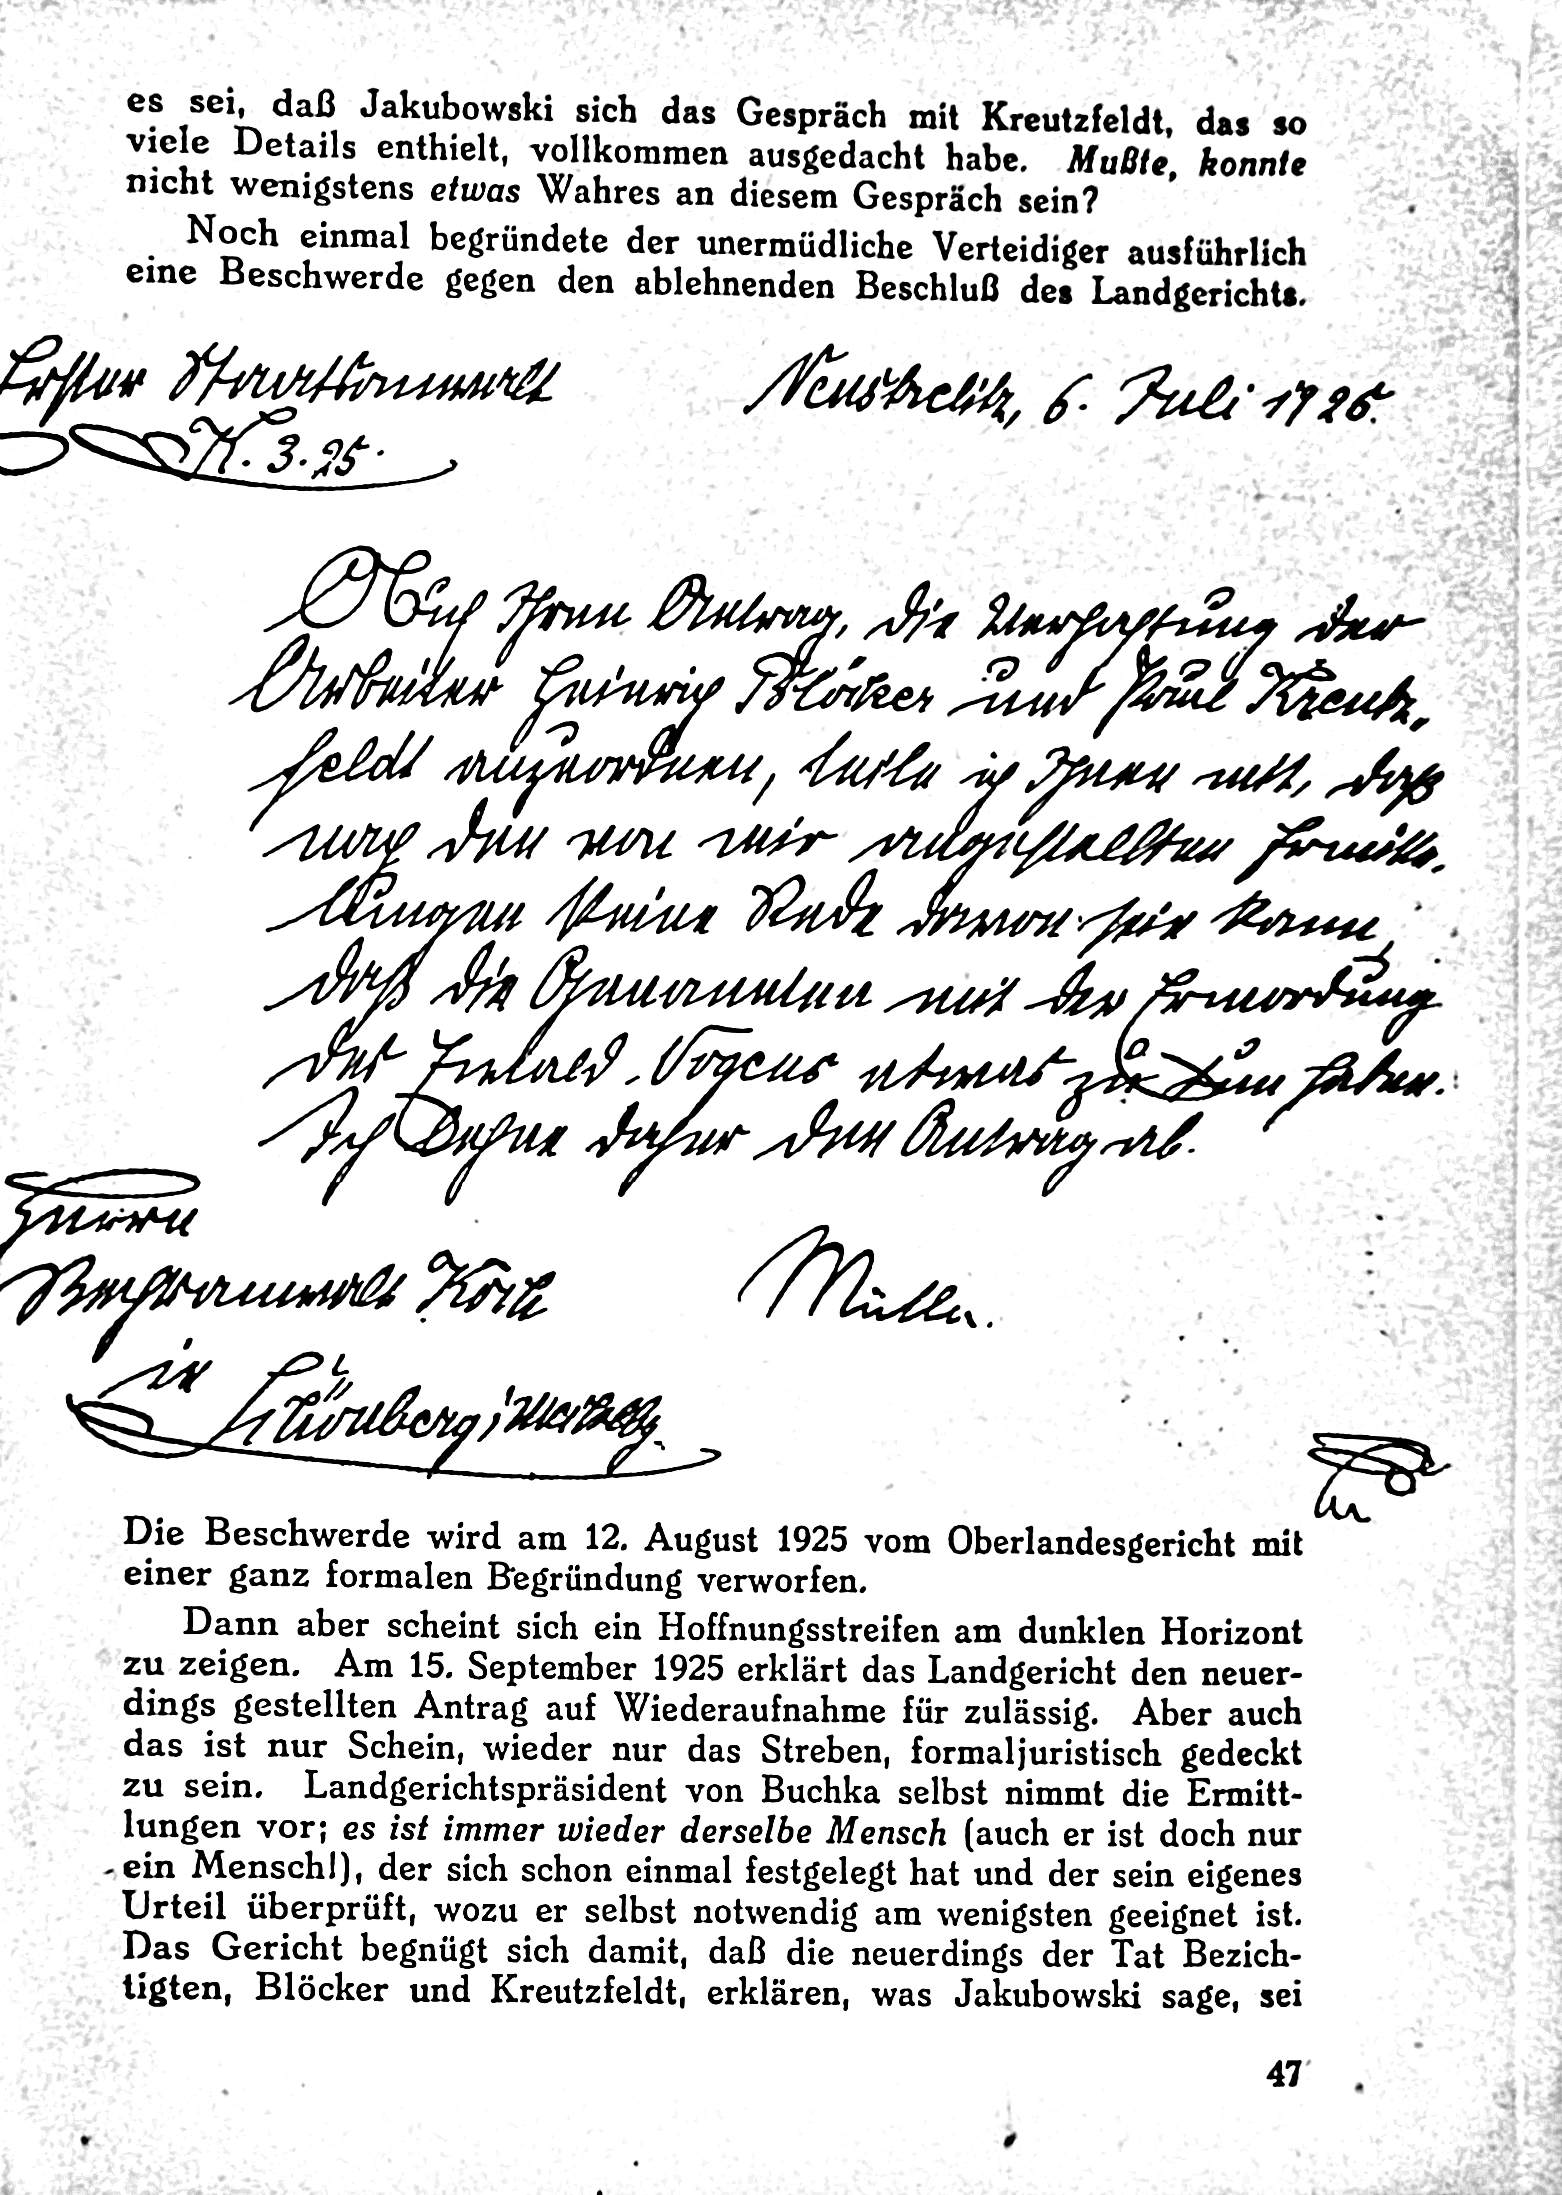 es sei, daß Jakubowski sich das Gespräch mit Kreutzfeldt, das so
viele Details enthielt, vollkommen ausgedacht habe. Mußte, konnte
nicht wenigstens etwas Wahres an diesem Gespräch sein?
Noch einmal begründete der unermüdliche Verteidiger ausführlich
eine Beschwerde gegen den ablehnenden Beschluß des Landgerichts.
Erster Staatsanwalt
Neustrelitz, 6. Juli 1925.
K. 3. 25.
Auf Ihren Antrag, die Verhaftung der
Arbeiter Heinrich Blöcker und Paul Kreutz-
feldt anzuordnen, teile ich Ihnen mit, daß
nach den von mir angestellten Ermitte-
lungen keine Rede davon sein kann,
daß die Genannten mit der Ermordung
des Ewald Nogens etwas zu tun haben.
Ich lehne daher den Antrag ab.
Herrn
Rechtsanwalt Koch
Müller.
in
Schönberg i/Mecklbg.
Die Beschwerde wird am 12. August 1925 vom Oberlandesgericht mit
einer ganz formalen Begründung verworfen.
Dann aber scheint sich ein Hoffnungsstreifen am dunklen Horizont
zu zeigen. Am 15. September 1925 erklärt das Landgericht den neuer-
dings gestellten Antrag auf Wiederaufnahme für zulässig. Aber auch
das ist nur Schein, wieder nur das Streben, formaljuristisch gedeckt
zu sein. Landgerichtspräsident von Buchka selbst nimmt die Ermitt-
lungen vor; es ist immer wieder derselbe Mensch (auch er ist doch nur
ein Mensch!), der sich schon einmal festgelegt hat und der sein eigenes
Urteil überprüft, wozu er selbst notwendig am wenigsten geeignet ist.
Das Gericht begnügt sich damit, daß die neuerdings der Tat Bezich-
tigten, Blöcker und Kreutzfeldt, erklären, was Jakubowski sage, sei
47